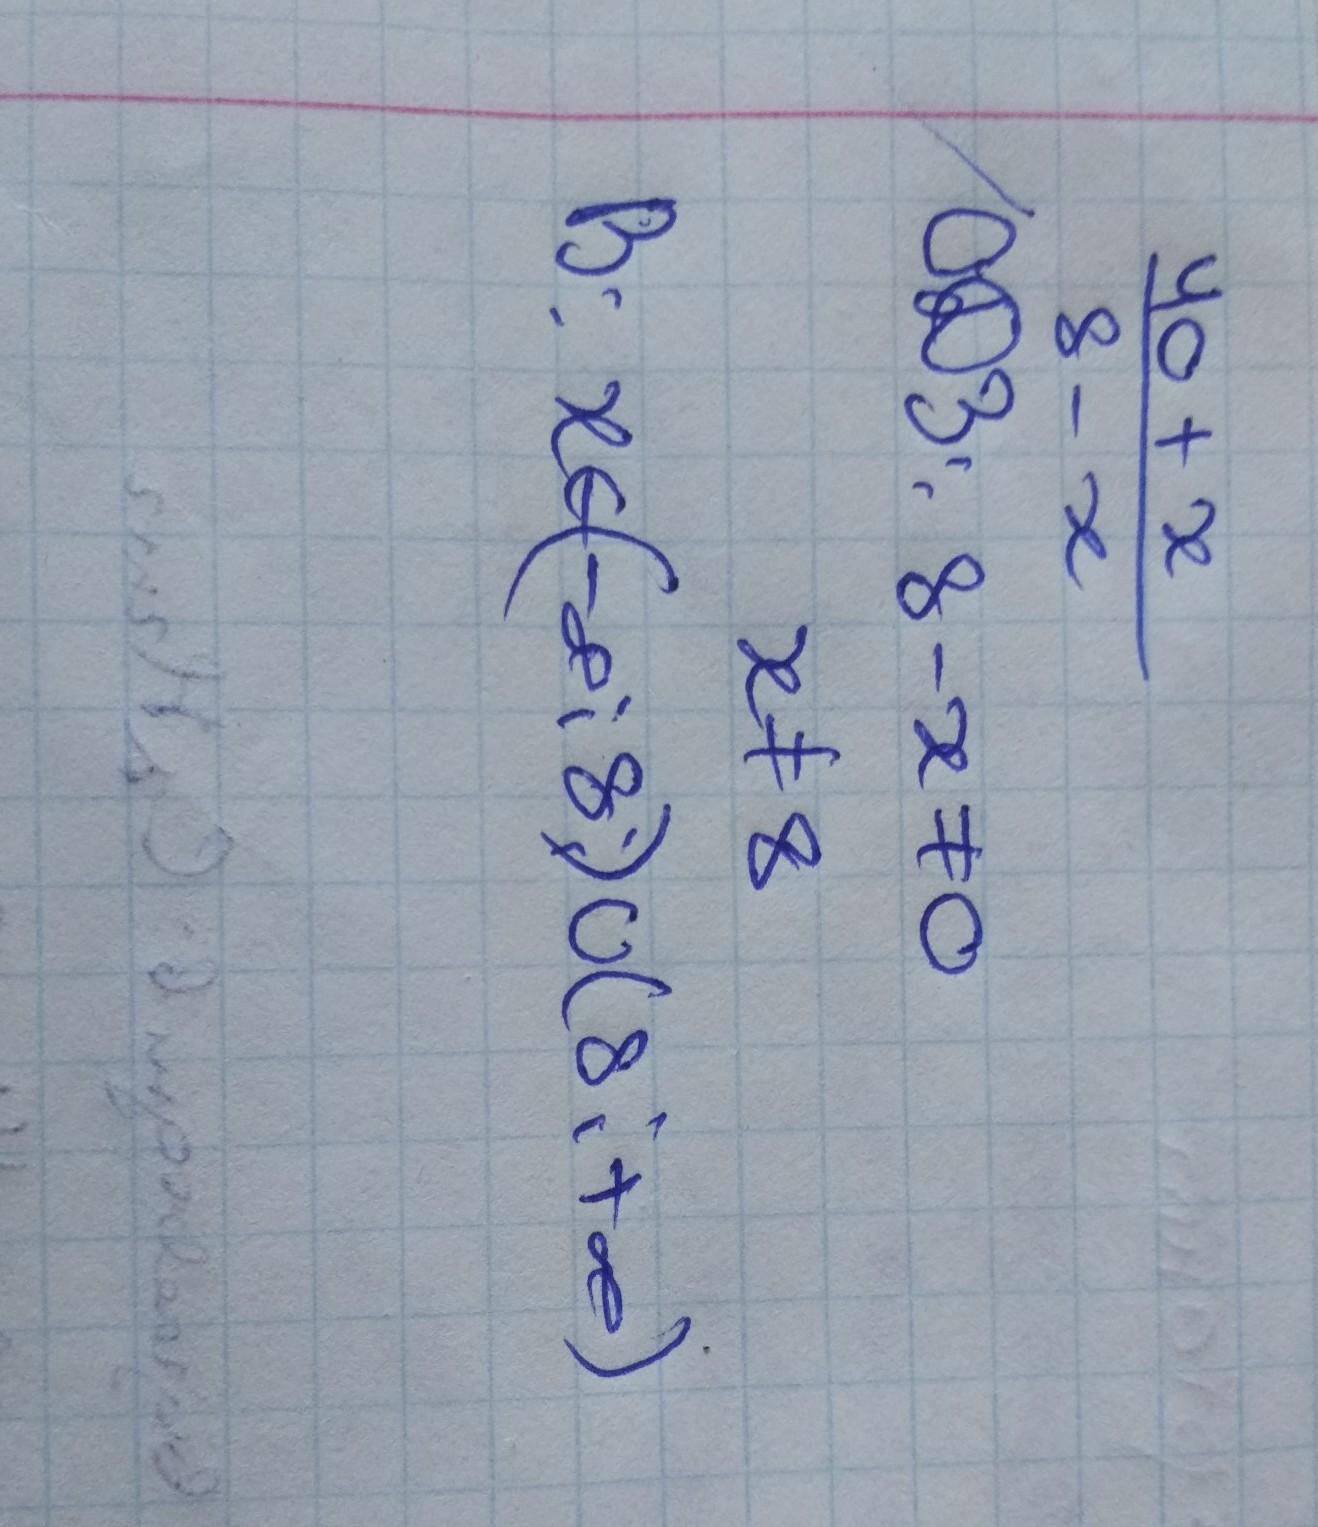 40 + x
8 - x
ОДЗ: 8 - x ≠ 0
x ≠ 8
В: x ∈ (-∞; 8) ∪ (8; +∞)